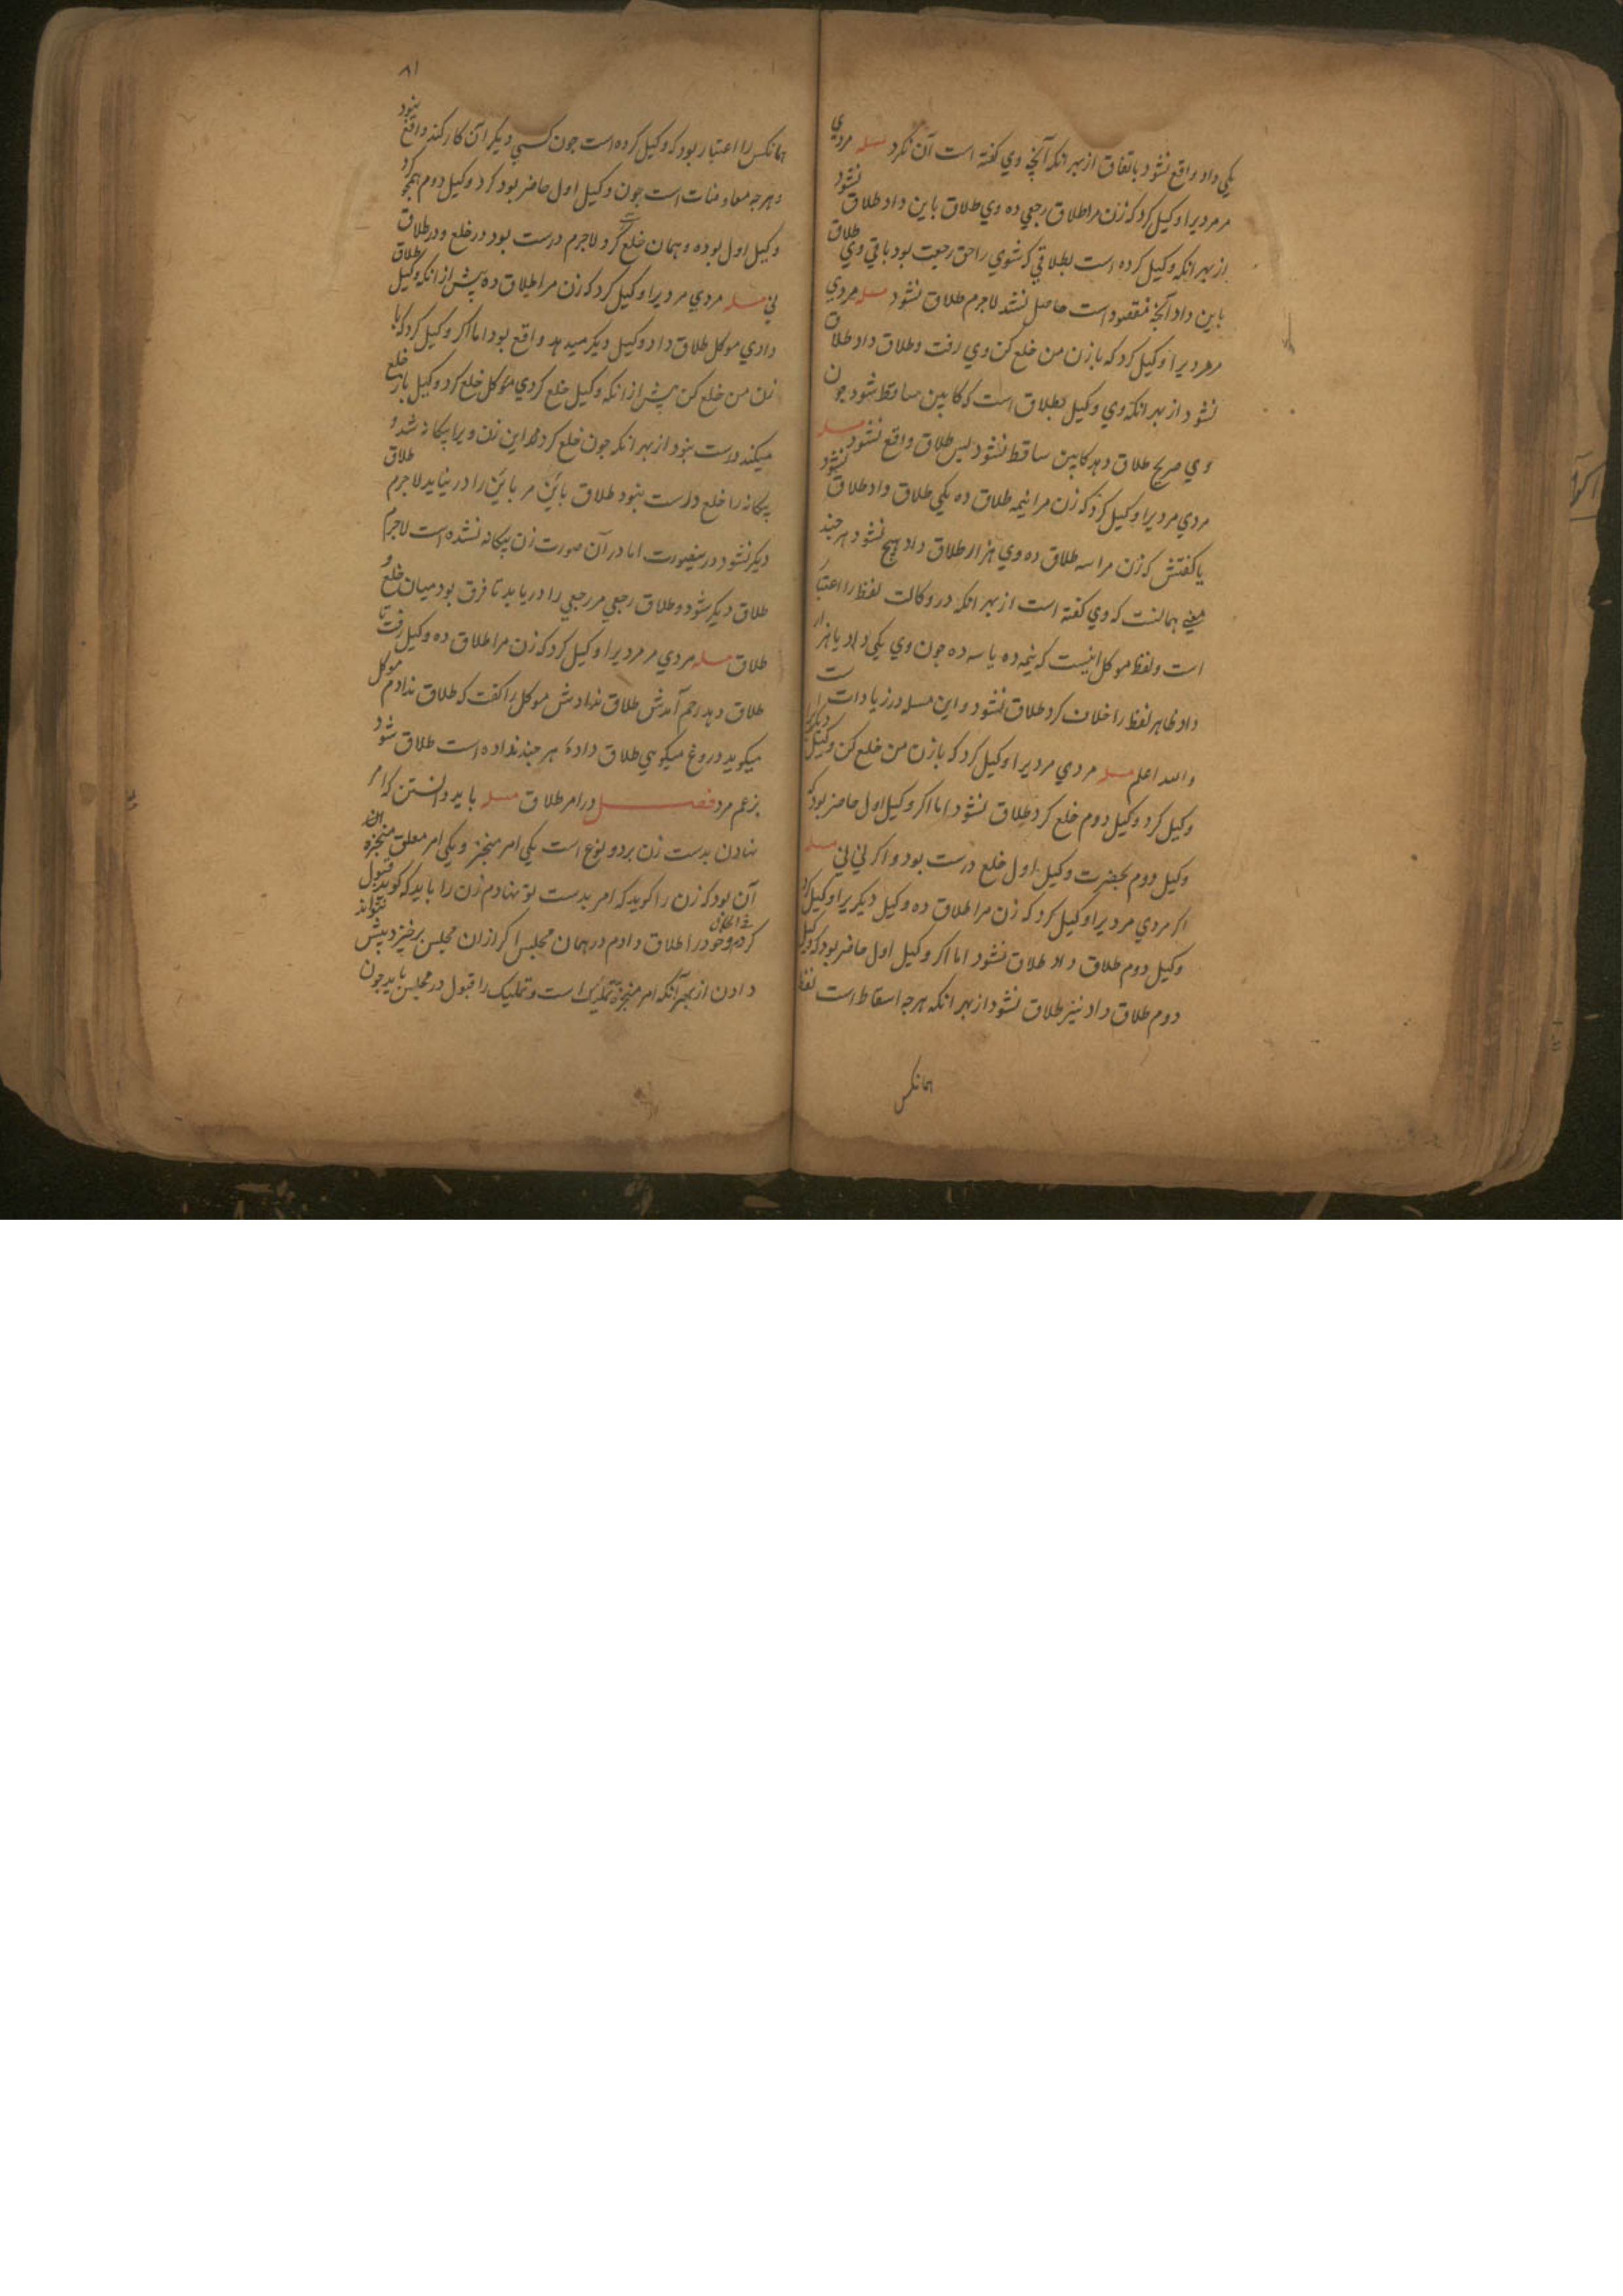 یکی داد واقع نشود باتفاق از بهر انکه آنچه وی کفته است آن نکرد مسله مردی
مر مردیرا وکیل کرد که زن مرا طلاق رجعی ده وی طلاق باین داد طلاق نشود
از بهر انکه وکیل کرده است بطلاقی که شوی را حق رجعت بود باقی وی طلاق
باین داد آنچه مقصود است حاصل نشد لاجرم طلاق نشود مسله مردی
مر مردیرا وکیل کرد که با زن من خلع کن وی رفت و طلاق داد طلاق
نشود از بهر انکه وی وکیل بطلاق است که کابین ساقط شود جون
وی صریح طلاق دهد کابین ساقط نشود بس طلاق واقع نشود مسله
مردی مر دیرا وکیل کرد که زن مرا نیمه طلاق ده یکی طلاق داد طلاق نشود
یا کفتش که زن مرا سه طلاق ده وی هزار طلاق داد هیج نشود هر جند
معنی همانست که وی کفته است از بهر انکه در وکالت لفظ را اعتبار
است و لفظ موکل اینست که نیمه ده یا سه ده جون وی یکی داد یا هزار
داد ظاهر لفظ را خلاف کرد طلاق نشود و این مسله در زیادات است
والله اعلم مسله مردی مر دیرا وکیل کرد که با زن من خلع کن وکیل دیکریرا
وکیل کرد وکیل دوم خلع کرد طلاق نشود اما اکر وکیل اول حاضر بود که
وکیل دوم بحضرت وکیل اول خلع درست بود و اکر نی نی مسله
اکر مردی مر دیرا وکیل کرد که زن مرا طلاق ده وکیل دیکریرا وکیل کرد
وکیل دوم طلاق داد طلاق نشود اما اکر وکیل اول حاضر بود که وکیل
دوم طلاق داد نیز طلاق نشود از بهر انکه هرجه اسقاط است لفظ
همانکس
۸۱
همانکس را اعتبار بود که وکیل کرده است جون کسی دیکر آن کار کند واقع نبود
و هرجه معاوضات است جون وکیل اول حاضر بود کرد وکیل دوم همجو کرد
وکیل اول بوده و همان خلع کرد لاجرم درست بود در خلع و در طلاق
نی مسله مردی مر دیرا وکیل کرد که زن مرا طلاق ده پیش از انکه وکیل طلاق
دادی موکل طلاق داد وکیل دیکر میدهد واقع بود اما اکر وکیل کرد که با
زن من خلع کن پیش از انکه وکیل خلع کردی موکل خلع کرد وکیل باز خلع
میکند درست نبود از بهر انکه جون خلع کرد این زن ویرا بیکانه شد و
بیکانه را خلع درست نبود طلاق باین مر باین را در نیابد لاجرم طلاق
دیکر نشود درینصورت اما در آن صورت زن بیکانه نشده است لاجرم
طلاق دیکر شود و طلاق رجعی مر رجعی را دریابد تا فرق بود میان خلع و
طلاق مسله مردی مر مردیرا وکیل کرد که زن مرا طلاق ده وکیل رفت تا
طلاق دهد رحم آمدش طلاق ندادش موکل را کفت که طلاق ندادم موکل
میکوید دروغ میکویی طلاق دادۀ هر جند نداده است طلاق شود
بزعم مرد فصل در امر طلاق مسله باید دانستن که امر
نهادن بدست زن بر دو نوع است یکی امر منجز و یکی امر معلق منجزه
آن بود که زن را کوید که امر بدست تو نهادم زن را باید که کوید قبول
کردم و خود را طلاق دادم در همان مجلس اکر از ان مجلس برخیزد بیش نتواند
دادن از بهر آنکه امر منجزه تملیک است و تملیک را قبول در مجلس باید جون